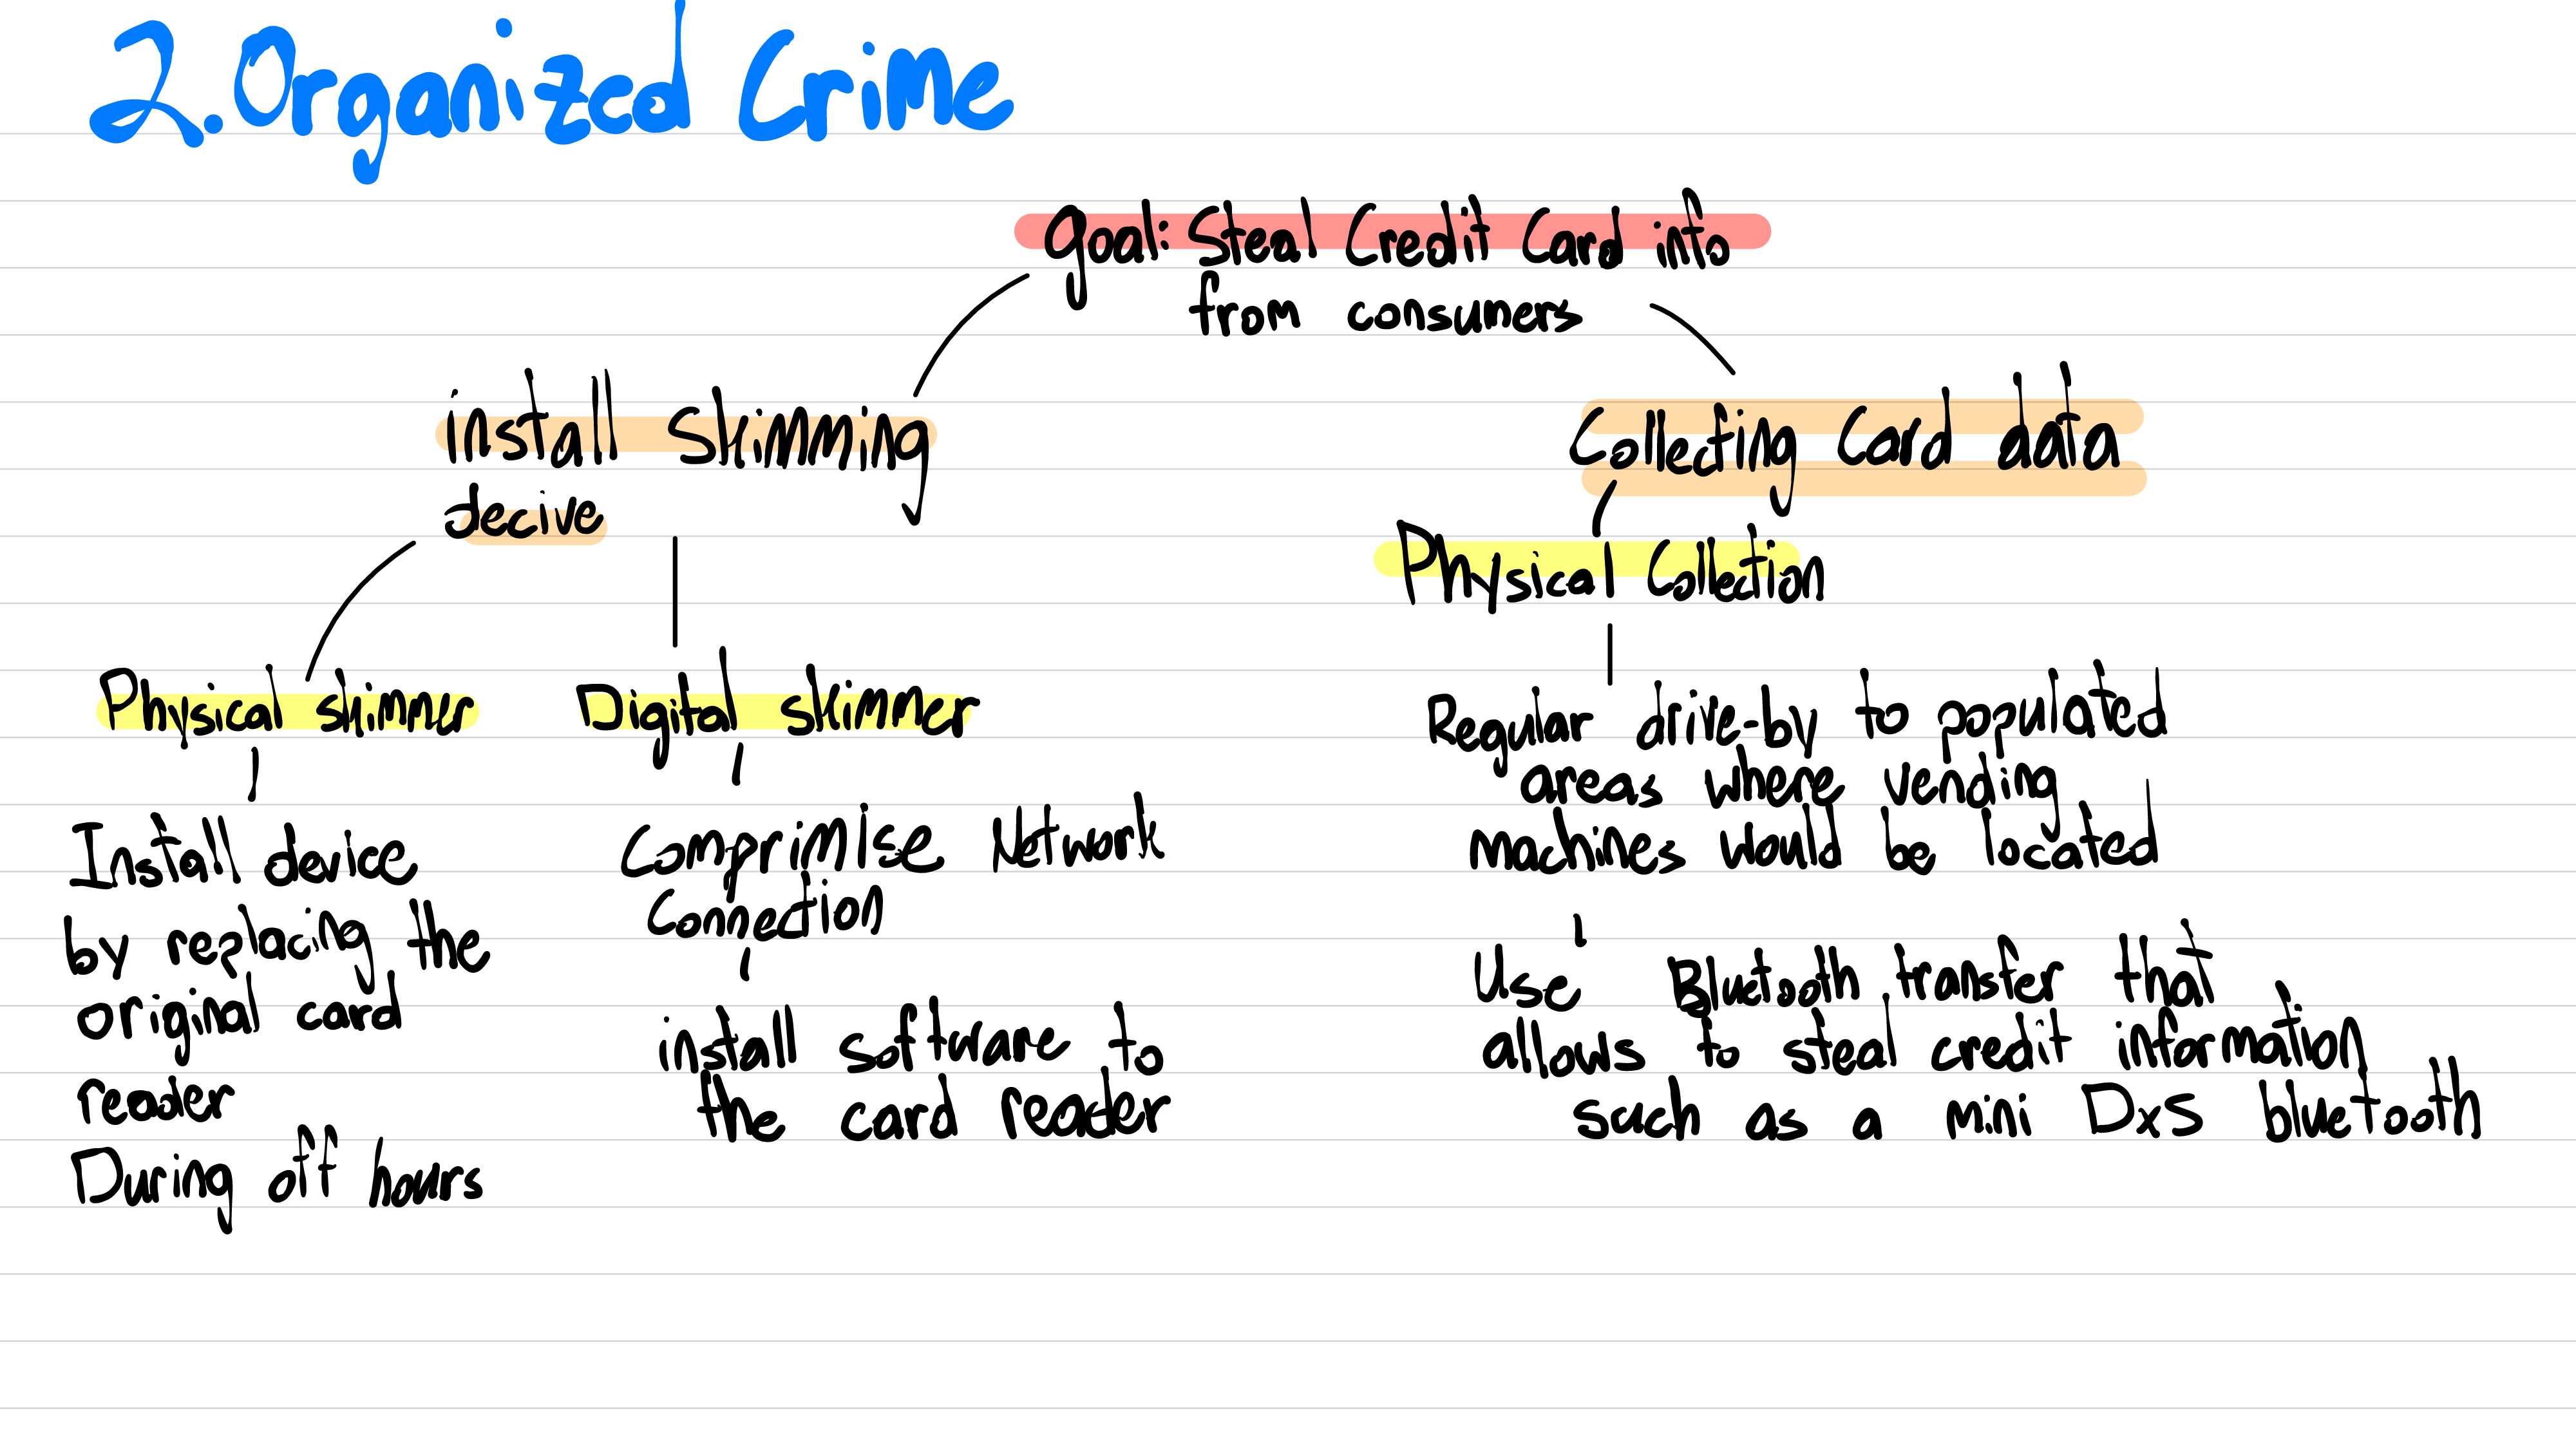 2. Organized Crime
Goal: Steal Credit Card info
from consumers
install skimming
decive
Physical skimmer
Install device
by replacing the
original card
reader
During off hours
Digital skimmer
Comprimise Network
Connection
install software to
the card reader
Collecting Card data
Physical Collection
Regular drive-by to populated
areas where vending
machines would be located
Use Bluetooth transfer that
allows to steal credit information
such as a mini DxS bluetooth